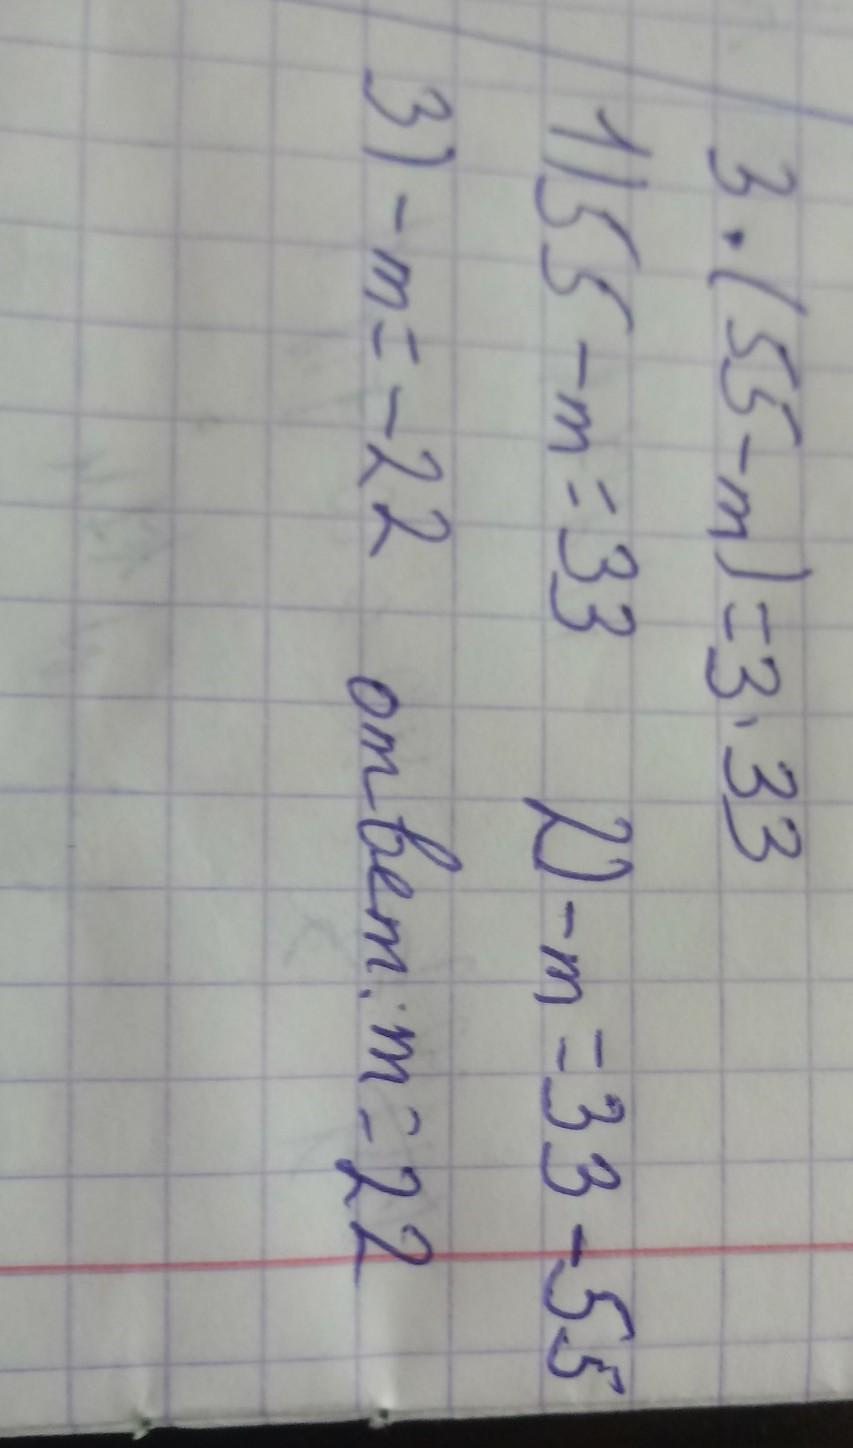 3·(55-m)=3·33
1)55-m=33 2)-m=33-55
3)-m=-22 ответ:m=22